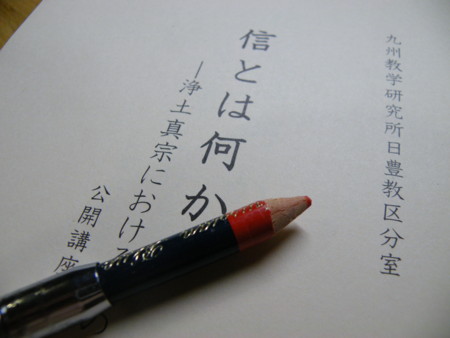 九州教学研究所日豊教区分室
信とは何か
―浄土真宗における
公開講座